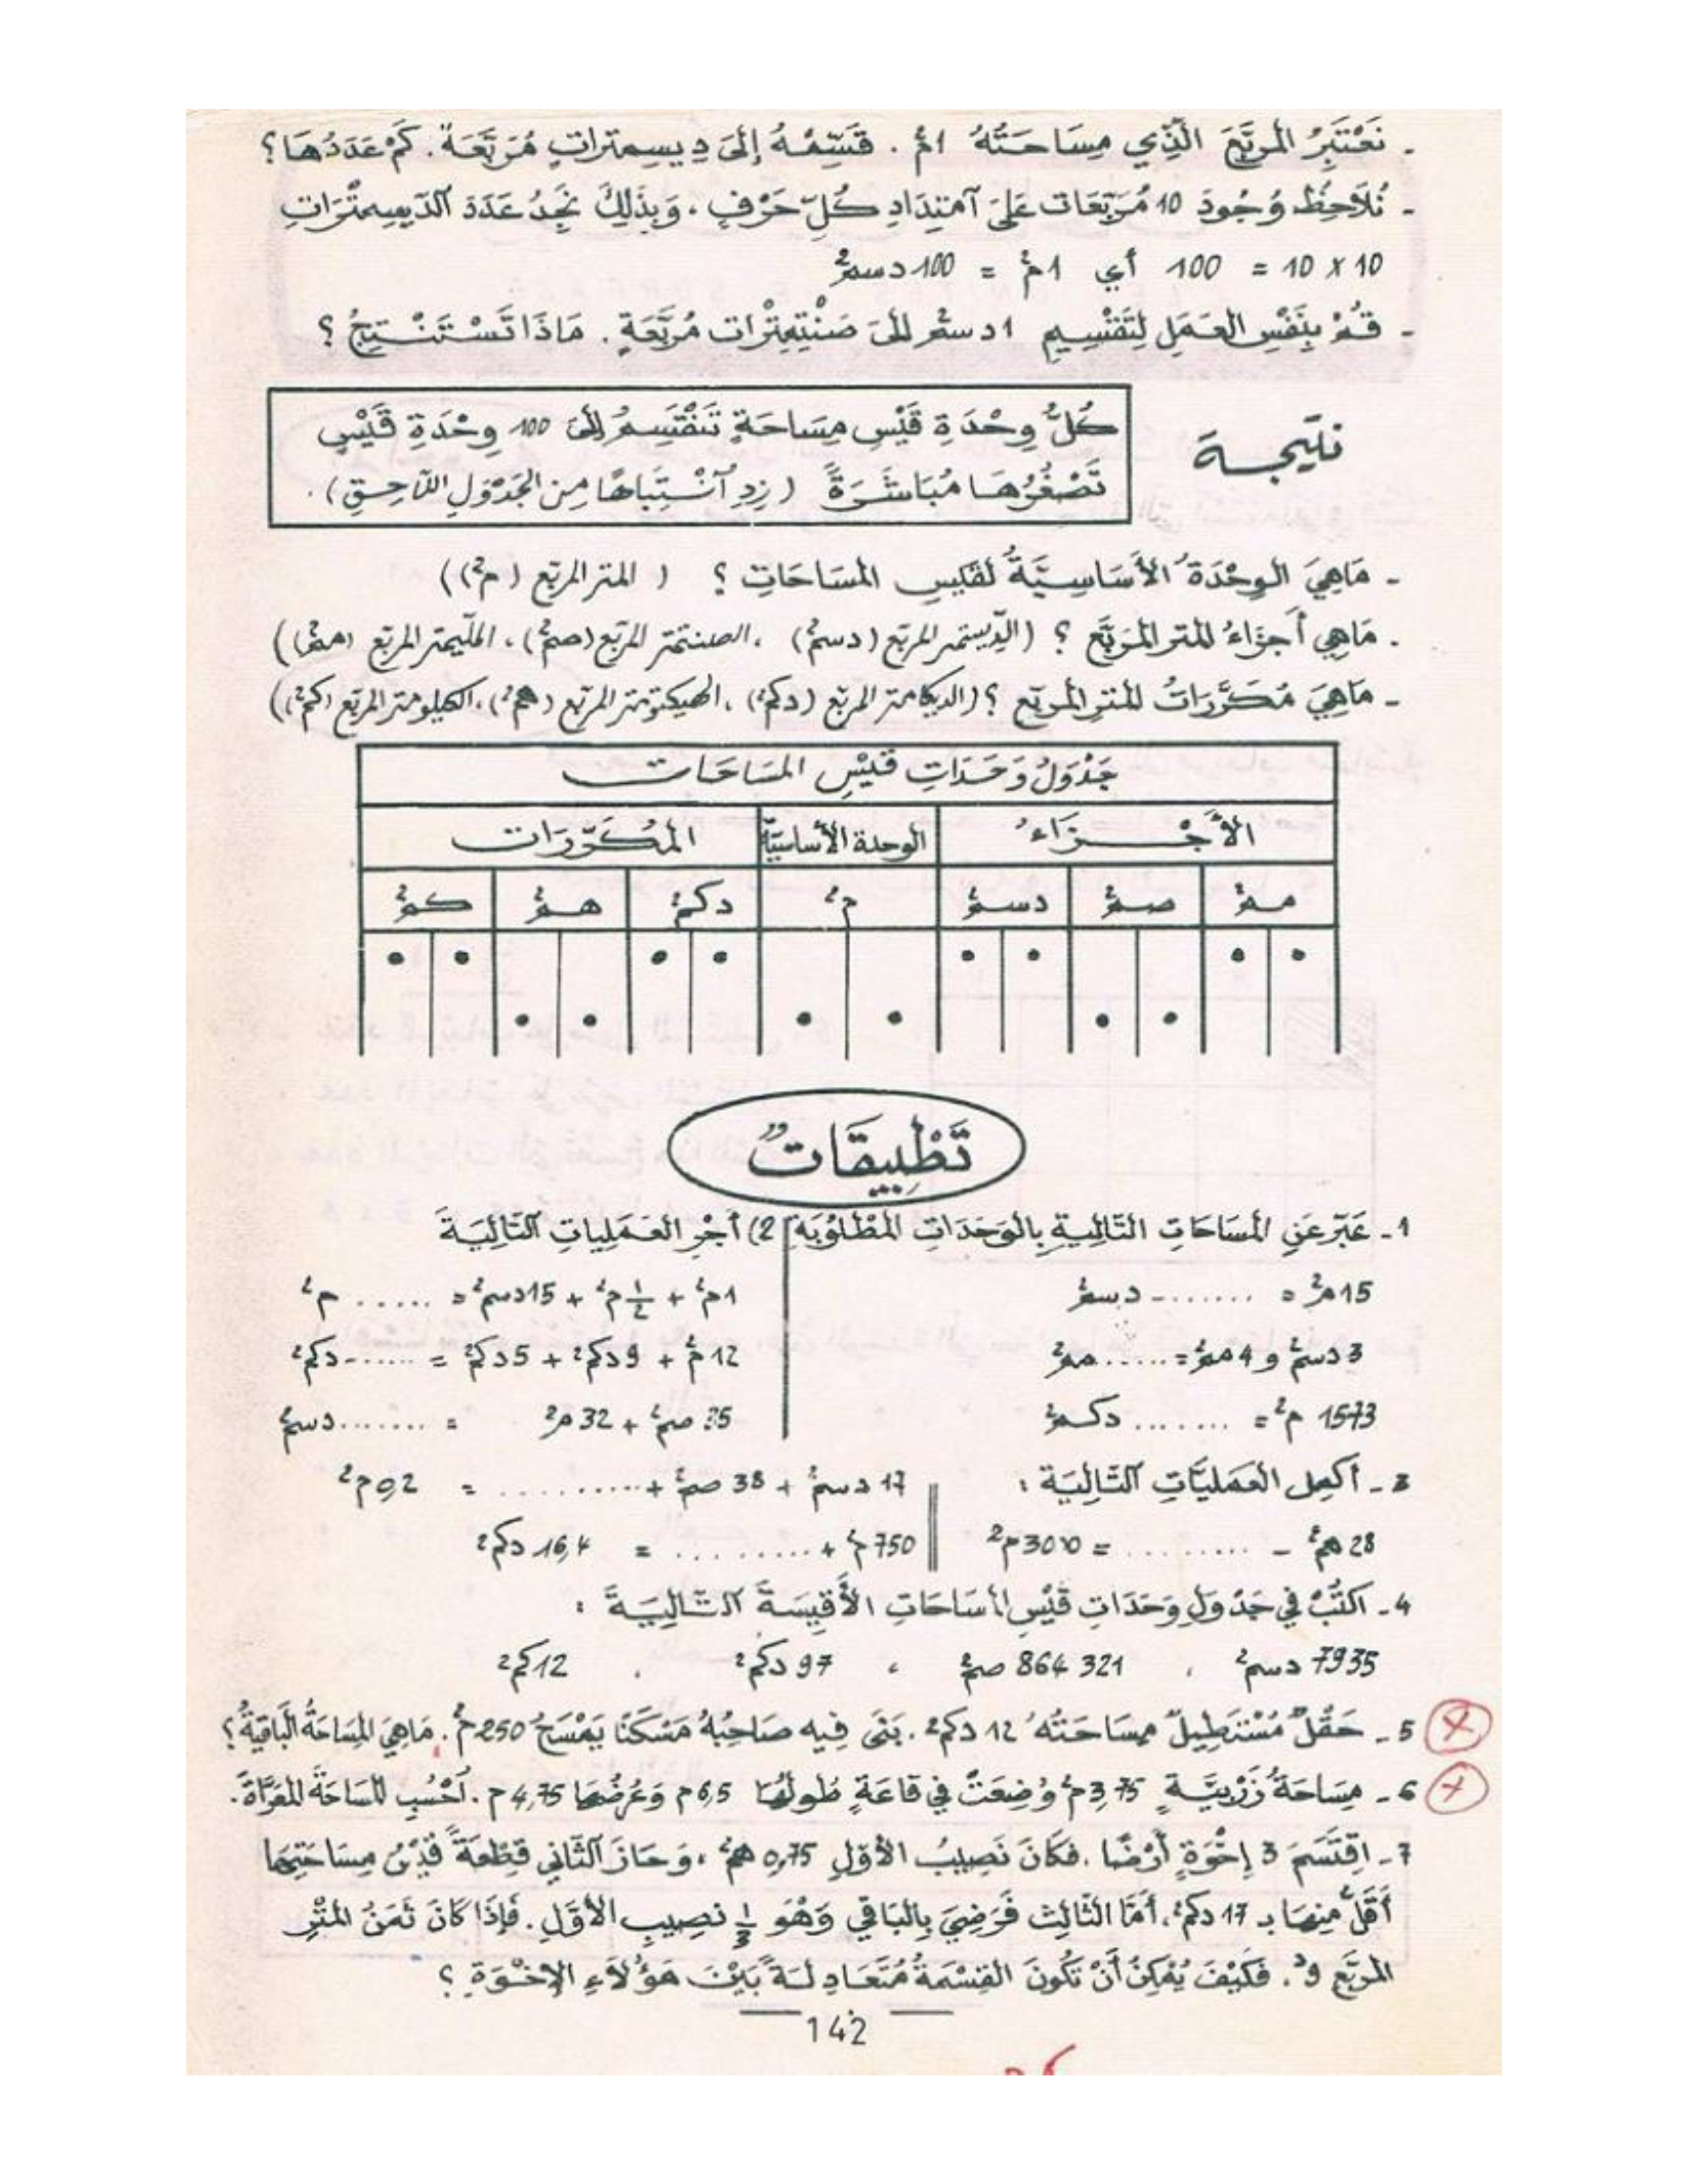 - نَعْتَبِرُ المربَّعَ الَّذِي مِسَاحَتُهُ 1م². قَسِّمْهُ إلَى دِيسِمِتراتٍ مُرَبَّعَة. كَمْ عَدَدُهَا؟
- نُلَاحِظُ وُجُودَ 10 مُرَبَّعَات عَلَى آمْتِدَادِ كُلِّ حَرْفٍ، وَبِذَلِكَ نَجِدُ عَدَدَ الدّيسِمِتْرَاتِ
10 x 10 = 100 أي 1م² = 100 دسم²
- قُمْ بِنَفْسِ العَمَلِ لِتَقْسِيمِ 1 دسم² إلَى صَنْتِيمِتْرات مُرَبَّعَةٍ. مَاذَا تَسْتَنْتِجُ؟
نتيجة
كُلُّ وِحْدَةِ قَيْسِ مِسَاحَةٍ تَنْقَسِمُ إلَى 100 وِحْدَةِ قَيْسٍ
تَصْغُرُهَا مُبَاشَرَةً (زِدِ آنْتِبَاهًا مِنَ الجَدْوَلِ اللّاحِقِ).
- مَاهِيَ الوِحْدَةُ الأَسَاسِيَّةُ لقَيسِ المسَاحَاتِ؟ (المتر المربّع (م²))
- مَاهِي أَجزَاءُ المتر المُرَبَّع؟ (الدّيسمتر المربّع (دسم²)، الصنتمتر المربّع (صم²)، الملّيمتر المربّع (مم²))
- مَاهِيَ مُكَرَّرَاتُ المتر المربّع؟ (الديكامتر المربّع (دكم²)، الهيكتومتر المربّع (هم²)، الكيلومتر المربّع (كم²))
جَدْوَلُ وَحَدَاتِ قَيْسِ المسَاحَات
الأَجْزَاءُ الوحدة الأساسيّة المُكَرّرَات
مم² صم² دسم² م² دكم² هم² كم²
تَطْبِيقَاتٌ
1- عَبّر عَنِ المسَاحَاتِ التَّالِيَةِ بالوَحَدَاتِ المَطْلُوبَةِ
15م² = ........ دسم²
3 دسم² و 4 مم² = ...... مم²
1573 م² = ........ دكم²
2) أَجْرِ العَمَلِيَاتِ التَّالِيَةَ
1م² + 1/2 م² + 15 دسم² = ...... م²
12م² + 9 دكم² + 5 دكم² = ....... دكم²
صم² + 32 م² = ....... دسم²
3- أكمِل العَمَليَّاتِ التَّالِيَة:
28 هم² - ......... = م²
17 دسم² + 38 صم² + .......... = 0,2 م²
750 م² + ......... = 16,4 دكم²
4- اكتُبْ في جَدْوَلِ وَحَدَاتِ قَيْسِ المسَاحَاتِ الأَقْيِسَةَ التَّالِيَةَ:
7935 دسم² ، 864 321 صم² ، 97 دكم² ، 12 كم²
5- حَقْلٌ مُسْتَطِيلٌ مِسَاحَتُهُ 12 دكم². بَنَى فِيه صَاحِبُهُ مَسْكَنًا يَمْسَحُ 250م². مَاهِيَ المِسَاحَةُ البَاقِيَةُ؟
6- مِسَاحَةُ زَرْبِيَّةٍ 3,75م² وُضِعَتْ في قَاعَةٍ طُولُهَا 6,5م وَعَرْضُهَا 4,75م. اُحْسُبِ المسَاحَةَ المُعَرَّاةَ.
7- اِقْتَسَمَ 3 إخْوَةٍ أرْضًا. فكَانَ نَصِيبُ الأوّلِ 0,75 هم²، وَحَازَ الثّاني قِطْعَةً قَيْسُ مِسَاحَتِهَا
أَقَلُّ مِنهَا بـ 17 دكم². أمّا الثّالِث فَرَضِيَ بِالبَاقي وَهْوَ 1/3 نَصِيبِ الأوّلِ. فَإذَا كَانَ ثَمَنُ المتْرِ
المربَّع 9د. فَكَيْفَ يُمْكِنُ أنْ تَكُونَ القِسْمَةُ مُتَعَادِلَةً بَيْنَ هَؤُلَاءِ الإخْوَةِ؟
142